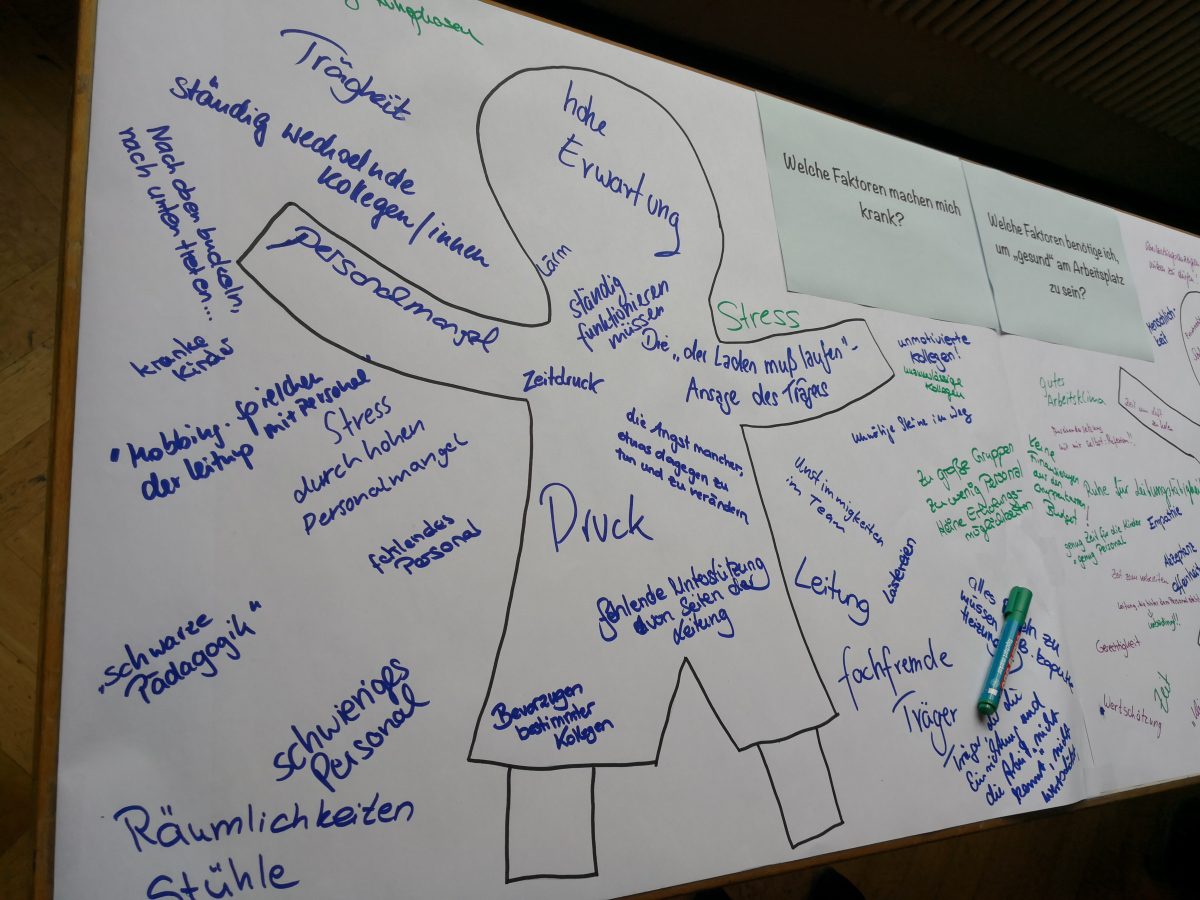 Trägheit
ständig wechselnde
Kollegen/innen
Nach oben buckeln,
nach unten treten...
Personalmangel
kranke
Kinder
"Mobbing-Spielchen
der Leitung mit Personal
Stress
durch hohen
Personalmangel
fehlendes
Personal
"schwarze
Pädagogik"
schwieriges
Personal
Räumlichkeiten
Stühle
hohe
Erwartung
Lärm
ständig
funktionieren
müssen
Stress
Die „der Laden muß laufen"-
Ansage des Trägers
Zeitdruck
die Angst mancher,
etwas dagegen zu
tun und zu verändern
Druck
fehlende Unterstützung
von Seiten der
Leitung
Bevorzugen
bestimmter
Kollegen
Welche Faktoren machen mich
krank?
Welche Faktoren benötige ich,
um „gesund" am Arbeitsplatz
zu sein?
unmotivierte
Kollegen!
unzuverlässige
Kollegen
unnötige Steine im Weg
Unstimmigkeiten
im Team
zu große Gruppen
zu wenig Personal
kleine
Leitung
Lästereien
fachfremde
Träger
alles
müssen zu
Heizung kaputte
Träger die
Einrichtung und
die Arbeit nicht
kennt, nicht
wertschätzt
Menschlich-
keit
gutes
Arbeitsklima
Keine
Finanzierungen
aus dem
Gruppenkassen
Budget!
Ruhe für
genug Zeit für die Kinder
genug Personal
Empathie
Akzeptanz
Offenheit
Gerechtigkeit
Wertschätzung
Zeit